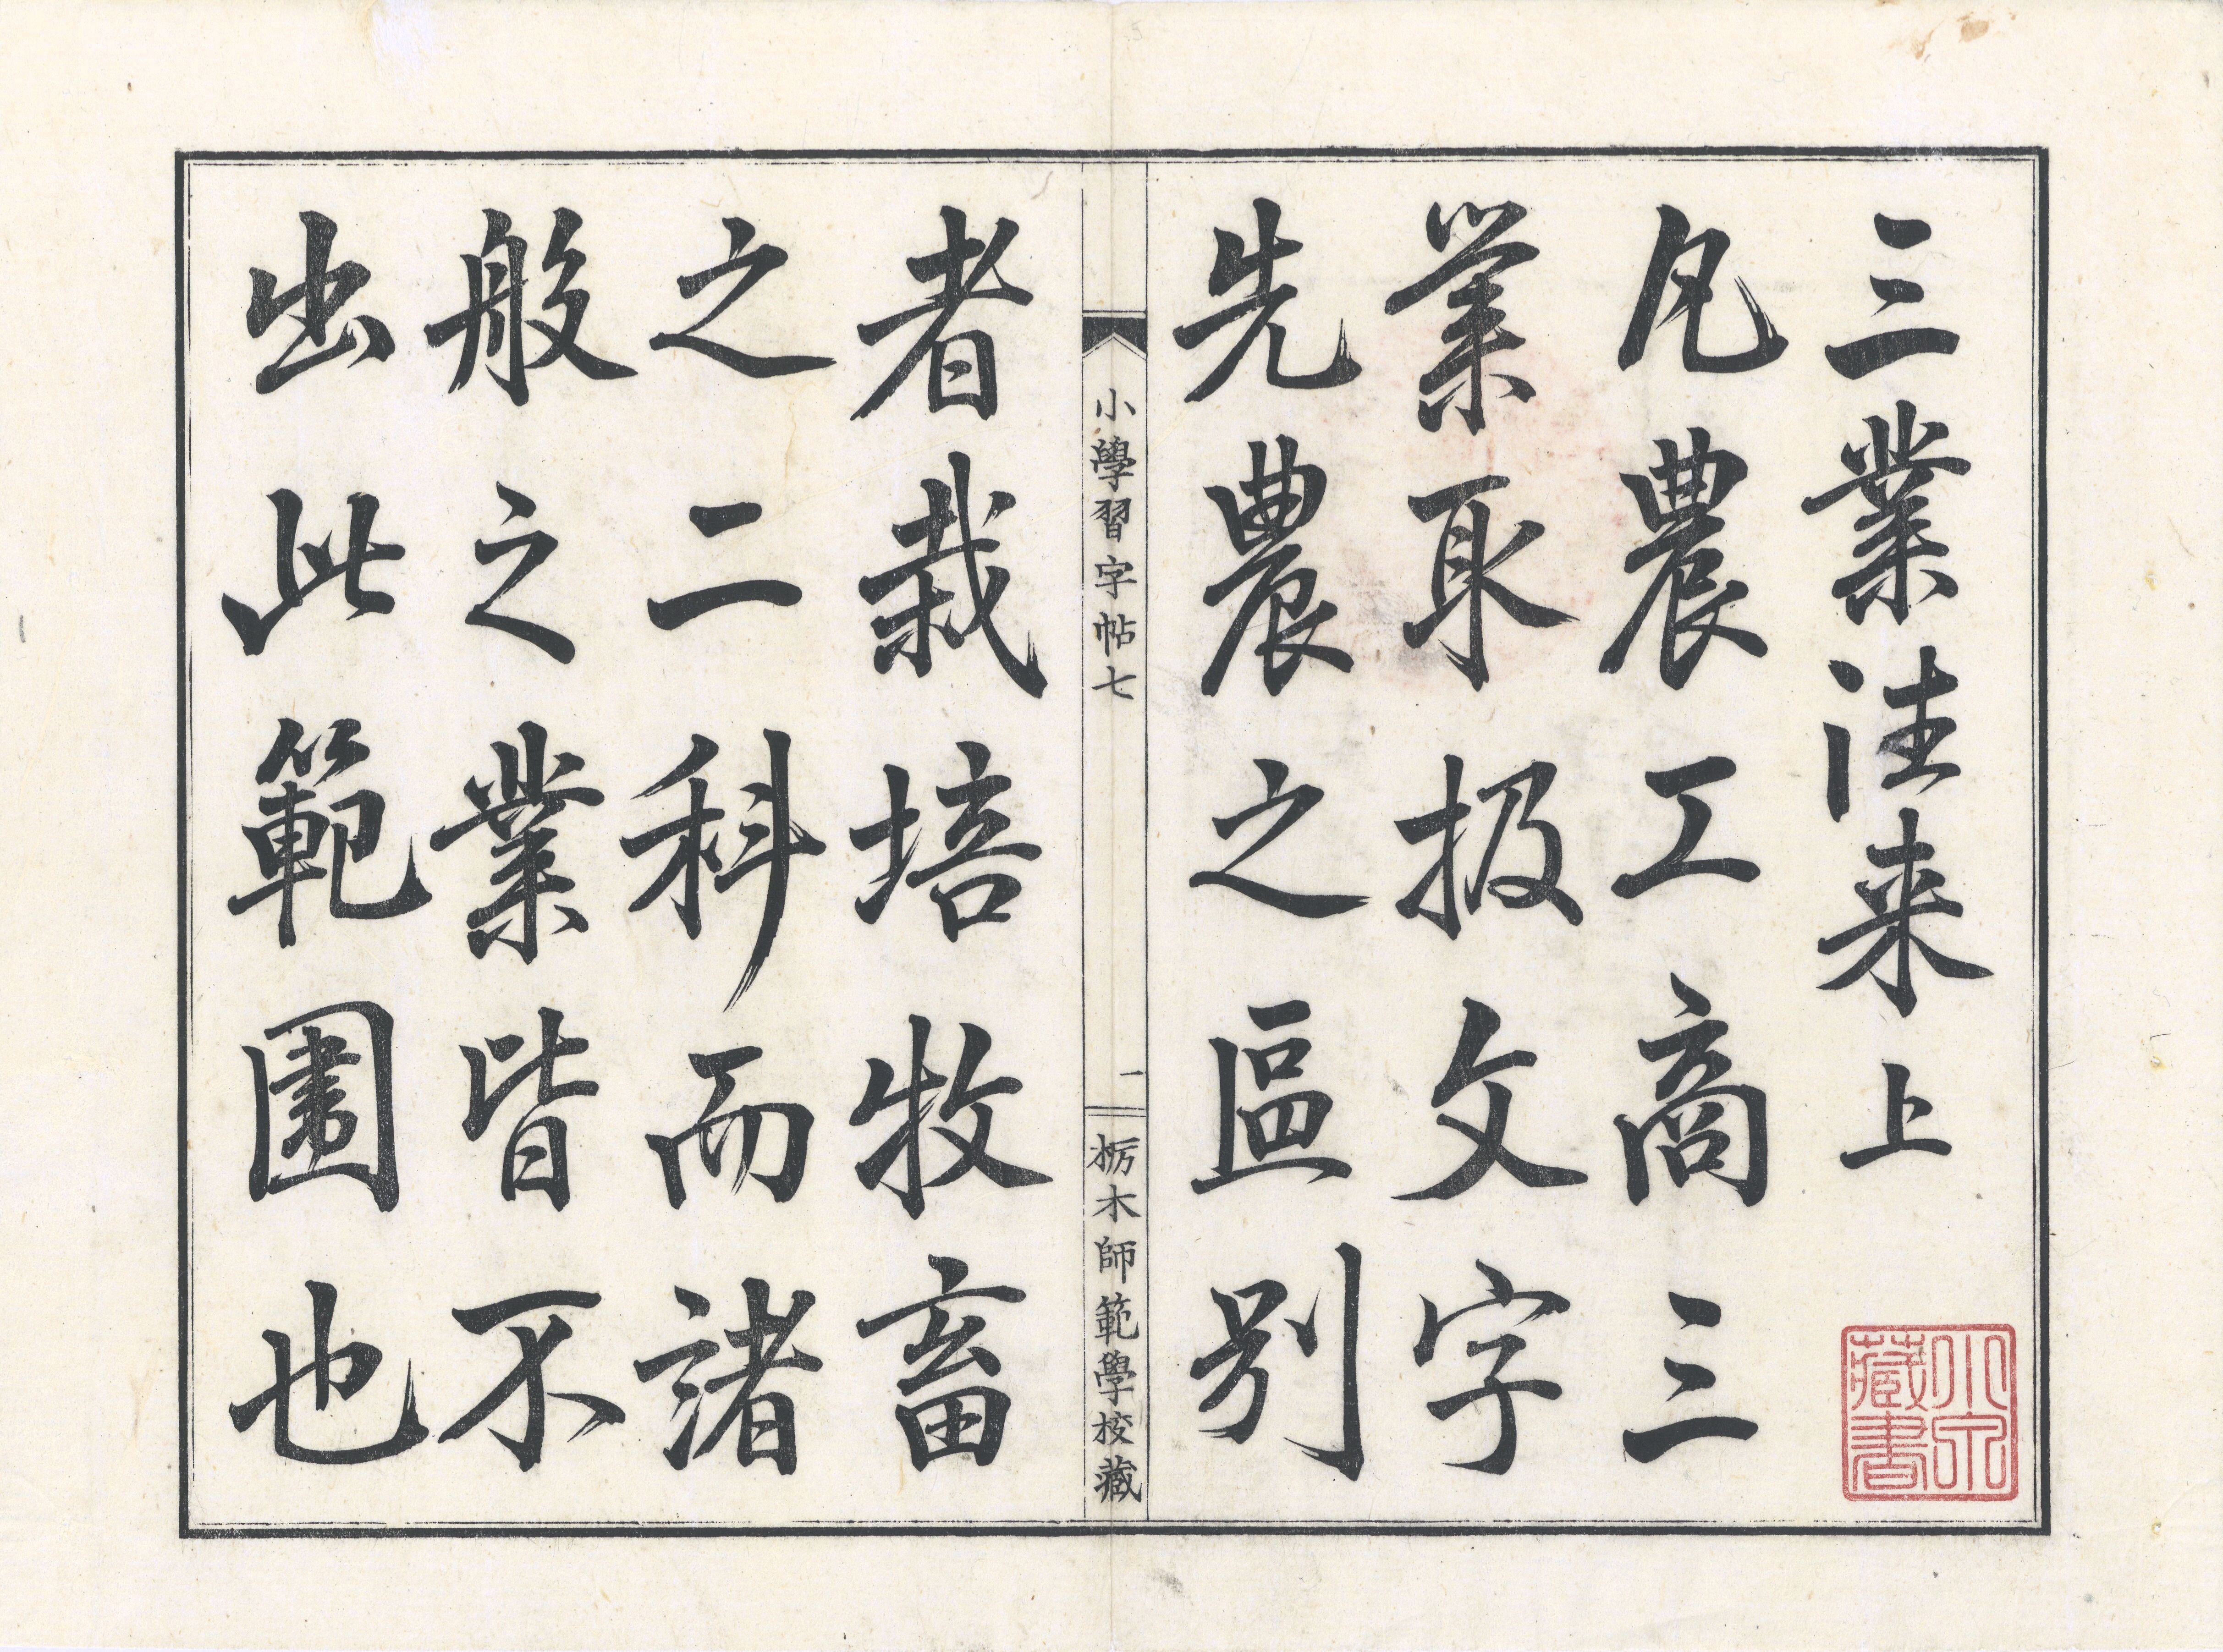 三業往来上
凡農工商三
業取扱文字
先農之區別
者栽培牧畜
之二科而諸
般之業皆不
出此範圍也
小學習字帖七
一
栃木師範學校藏
小泉
藏書